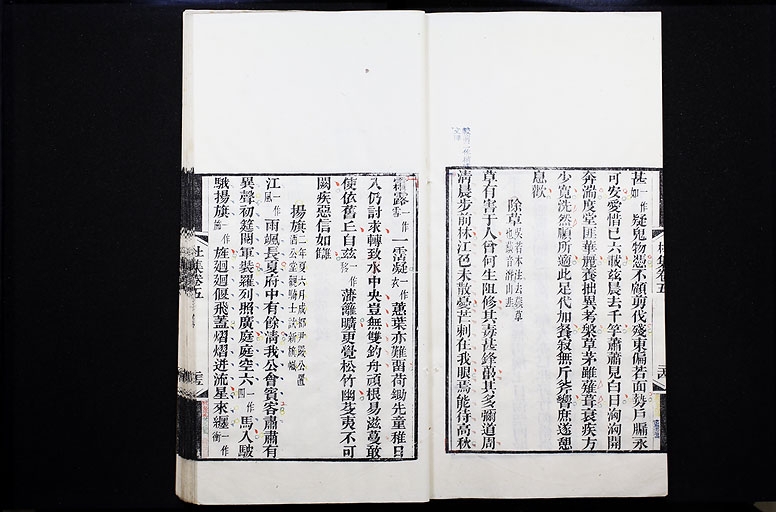 甚一作如疑鬼物憑不顧剪伐殘東偏若面勢戶牖永
可安愛惜已六載茲晨去千竿蕭蕭見白日洶洶開
奔湍度堂匪華麗養拙異考槃草茅雖薙葺衰疾方
少寬洗然順所適此足代加餐寂無斤斧響庶遂憩
息歡
除草
草有害于人曾何生阻修其毒甚蜂蠆其多彌道周
清晨步前林江色未散憂芒刺在我眼焉能待高秋
杜集卷五
霜露一作雪一霑凝一作衣蕙葉亦難留荷鋤先童稚日
入仍討求轉致水中央豈無雙釣舟頑根易滋蔓敢
使依舊丘自茲一作移藩籬曠更覺松竹幽芟夷不可
闕疾惡信如讎
揚旗二年夏六月成都尹嚴公置酒公堂觀騎士試新旗幟
江一作風雨颯長夏府中有餘清我公會賓客肅肅有
異聲初筵閱軍裝羅列照廣庭庭空六一作四馬入駊
騀揚旗一作旌迴迴偃飛蓋熠熠迸流星來纏一作衝
杜集卷五